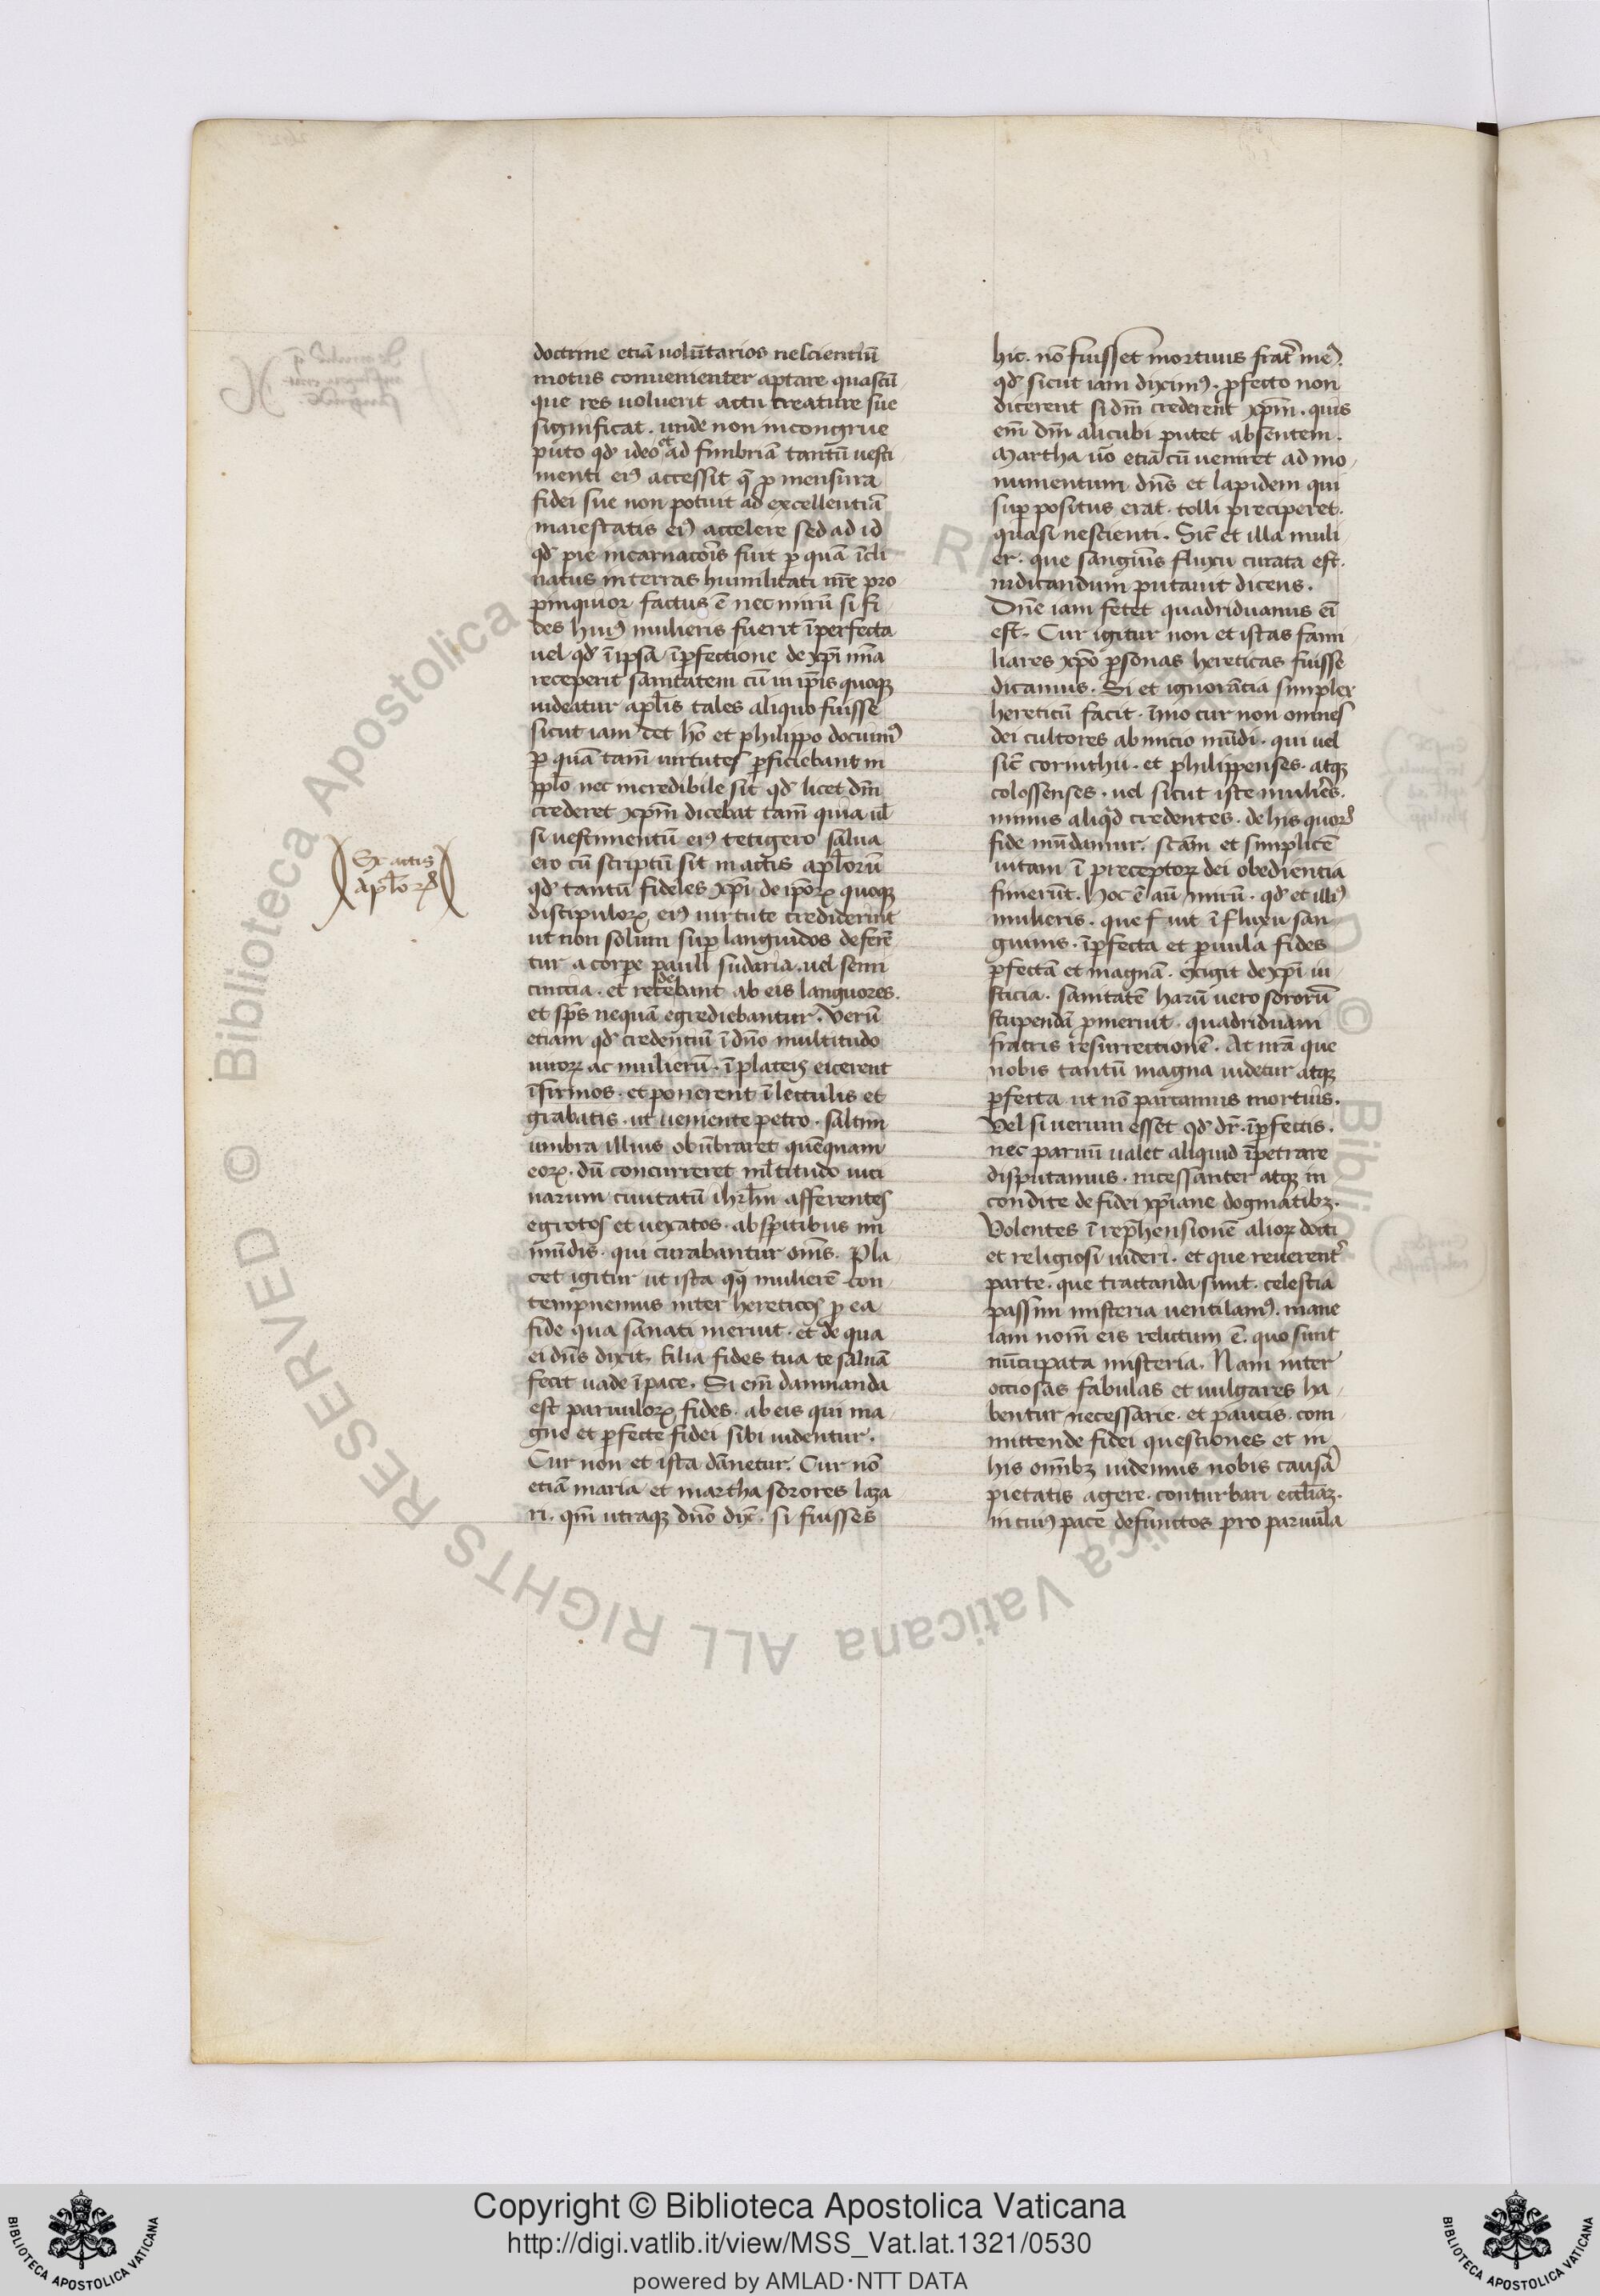 doctrine etiā volūtarios nescientiū
motus convenienter aptare quascū
que res voluerit actu creature sue
significat. unde non incongrue
puto qđ ideo et ad fimbriā tantū vesti
menti ei9 accessit q̄ p mensura
fidei sue non potuit ad excellentiā
maiestatis ei9 accelere sed ad id
qđ pie incarnacōis fuit p quā īcli
natus in terras humilitati nr̄e pro
pinquior factus ē nec mirū si fi
des hui9 mulieris fuerit īperfecta
vel qđ ī ipsa īpfectione de xp̄i
receperit sanitatem cū in ip̄is quoqꝫ
videatur apl̄is tales aliquo fuisse
sicut iam et philippo docuim9
p quā tam̄ virtutes pficiebant in
pplo nec incredibile sit qđ licet dm̄
crederet xp̄m dicebat tam̄ quia ul̄
si vestimentū ei9 tetigero salva
ero cū scriptū sit in actis apl̄orū
qđ tantū fideles xp̄i de ip̄orꝝ quoqꝫ
discipulorꝝ ei9 virtute crediderint
ut non solum sup languidos deferē
tur a corpe pauli sudaria. vel semi
cinctia. et recedebant ab eis languores.
et sp̄s nequā egrediebantur. Verū
etiam qđ credentiū ī dn̄o multitudo
virorꝝ ac mulierū. ī plateis eicerent
īfirmos. et ponerent ī lectulis et
grabatis. ut veniente petro. saltim
umbra illius obūbraret quēquam
eorꝝ. dū concurreret ml̄titudo vici
narum civitatū ihrl̄m afferentes
egrotos et vexatos. ab sp̄itibus im
mūdis. qui curabantur om̄s. Pla
cet igitur ut ista qꝫ mulierē con
tempnemus inter hereticos p ea
fide qua sanati meruit. et de qua
ei dn̄s dixit. filia fides tua te salvā
fecit vade ī pace. Si em̄ damnanda
est parvulorꝝ fides. ab eis qui ma
gne et pfecte fidei sibi videntur.
Cur non et ista dānetur. Cur nō
etiā maria et martha sorores laza
ri. qm̄ utraqꝫ dn̄o dix̄. si fuisses
Ex actis
apl̄orꝝ
hic. nō fuisset mortuus frat̄ me9.
qđ sicut iam dixim9. pfecto non
dicerent si dm̄ crederēt xp̄m. quis
em̄ dm̄ alicubi putet absentem.
Martha v̄o etiā cū veniret ad mo
numentum dn̄s et lapidem qui
sup positus erat. tolli preciperet.
quasi nescienti. Sic̄ et illa muli
er. que sanguīs fluxu curata est.
indicandum putavit dicens.
Dn̄e iam fetet quadriduanus eī
est. Cur igitur non et istas fami
liares xp̄o psonas hereticas fuisse
dicamus. Si et ignorācia simplex
hereticū facit. īmo cur non omnes
dei cultores ab inicio mūdi. qui vel
sic̄ corinthii. et philippenses. atqꝫ
colossenses. vel sicut iste muliēs.
minus aliqid credentes. de his quorꝝ
fide mūdamur. scām et simplicē
vitam ī preceptorꝝ dei obediencia
finierūt. Hoc ē aū mirū. qđ et illi9
mulieris. que fuit ī fluxu san
guinis. īpfecta et pvula fides
pfectā et magnā. exigit de xp̄i iu
sticia. sanitatē harū vero sororū
stupendā pmeruit. quadriduam
fratris resurrectionē. At nr̄a que
nobis tantū magna videtur atqꝫ
pfecta ut nō parcamus mortuis.
Vel si verum esset qđ dr̄. īpfectis.
nec parvū valet aliquid īpetrare
disputamus. incessanter atqꝫ in
condite de fidei xp̄iane dogmatibꝫ.
Volentes ī rep̄hensionē aliorꝝ docti
et religiosi videri. et que reverent̄
parte. que tractanda sunt. celestia
passim misteria ventilam9. inane
iam nom̄ eis relictum ē. quo sunt
nūcupata misteria. Nam inter
occiosas fabulas et vulgares ha
bentur necessarie. et paucis. com
mittende fidei questiones et in
his om̄ibꝫ videmus nobis causā
pietatis agere. conturbari eccl̄iaꝫ.
in cui9 pace defunctos pro parvula
Copyright © Biblioteca Apostolica Vaticana
http://digi.vatlib.it/view/MSS_Vat.lat.1321/0530
powered by AMLAD·NTT DATA
BIBLIOTECA APOSTOLICA VATICANA
BIBLIOTECA APOSTOLICA VATICANA
© Biblioteca Apostolica Vaticana ALL RIGHTS RESERVED